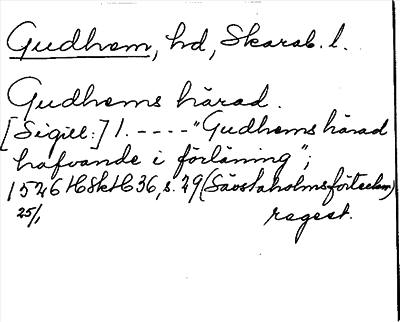 Gudhem, hd, Skarab. l.
Gudhems härad.
[Sigill:] 1. ---- "Gudhems härad
hafvande i förläning";
1526 HSkH 36, s. 29 (Sävstaholmsförteckn)
25/1 regest.